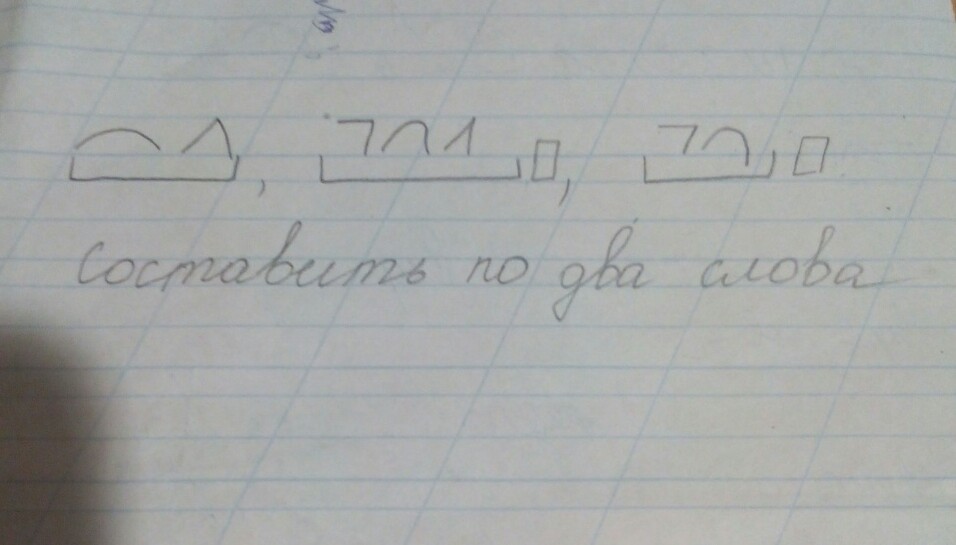 Составить по два слова